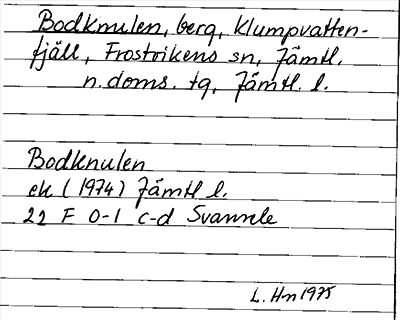 Bodknulen, berg, Klumpvatten-
fjäll, Frostvikens sn, Jämtl.
n. doms. tg, Jämtl. l.
Bodknulen
ek (1974) Jämtl l.
22 F 0-1 c-d Svannele
L. Hn 1975